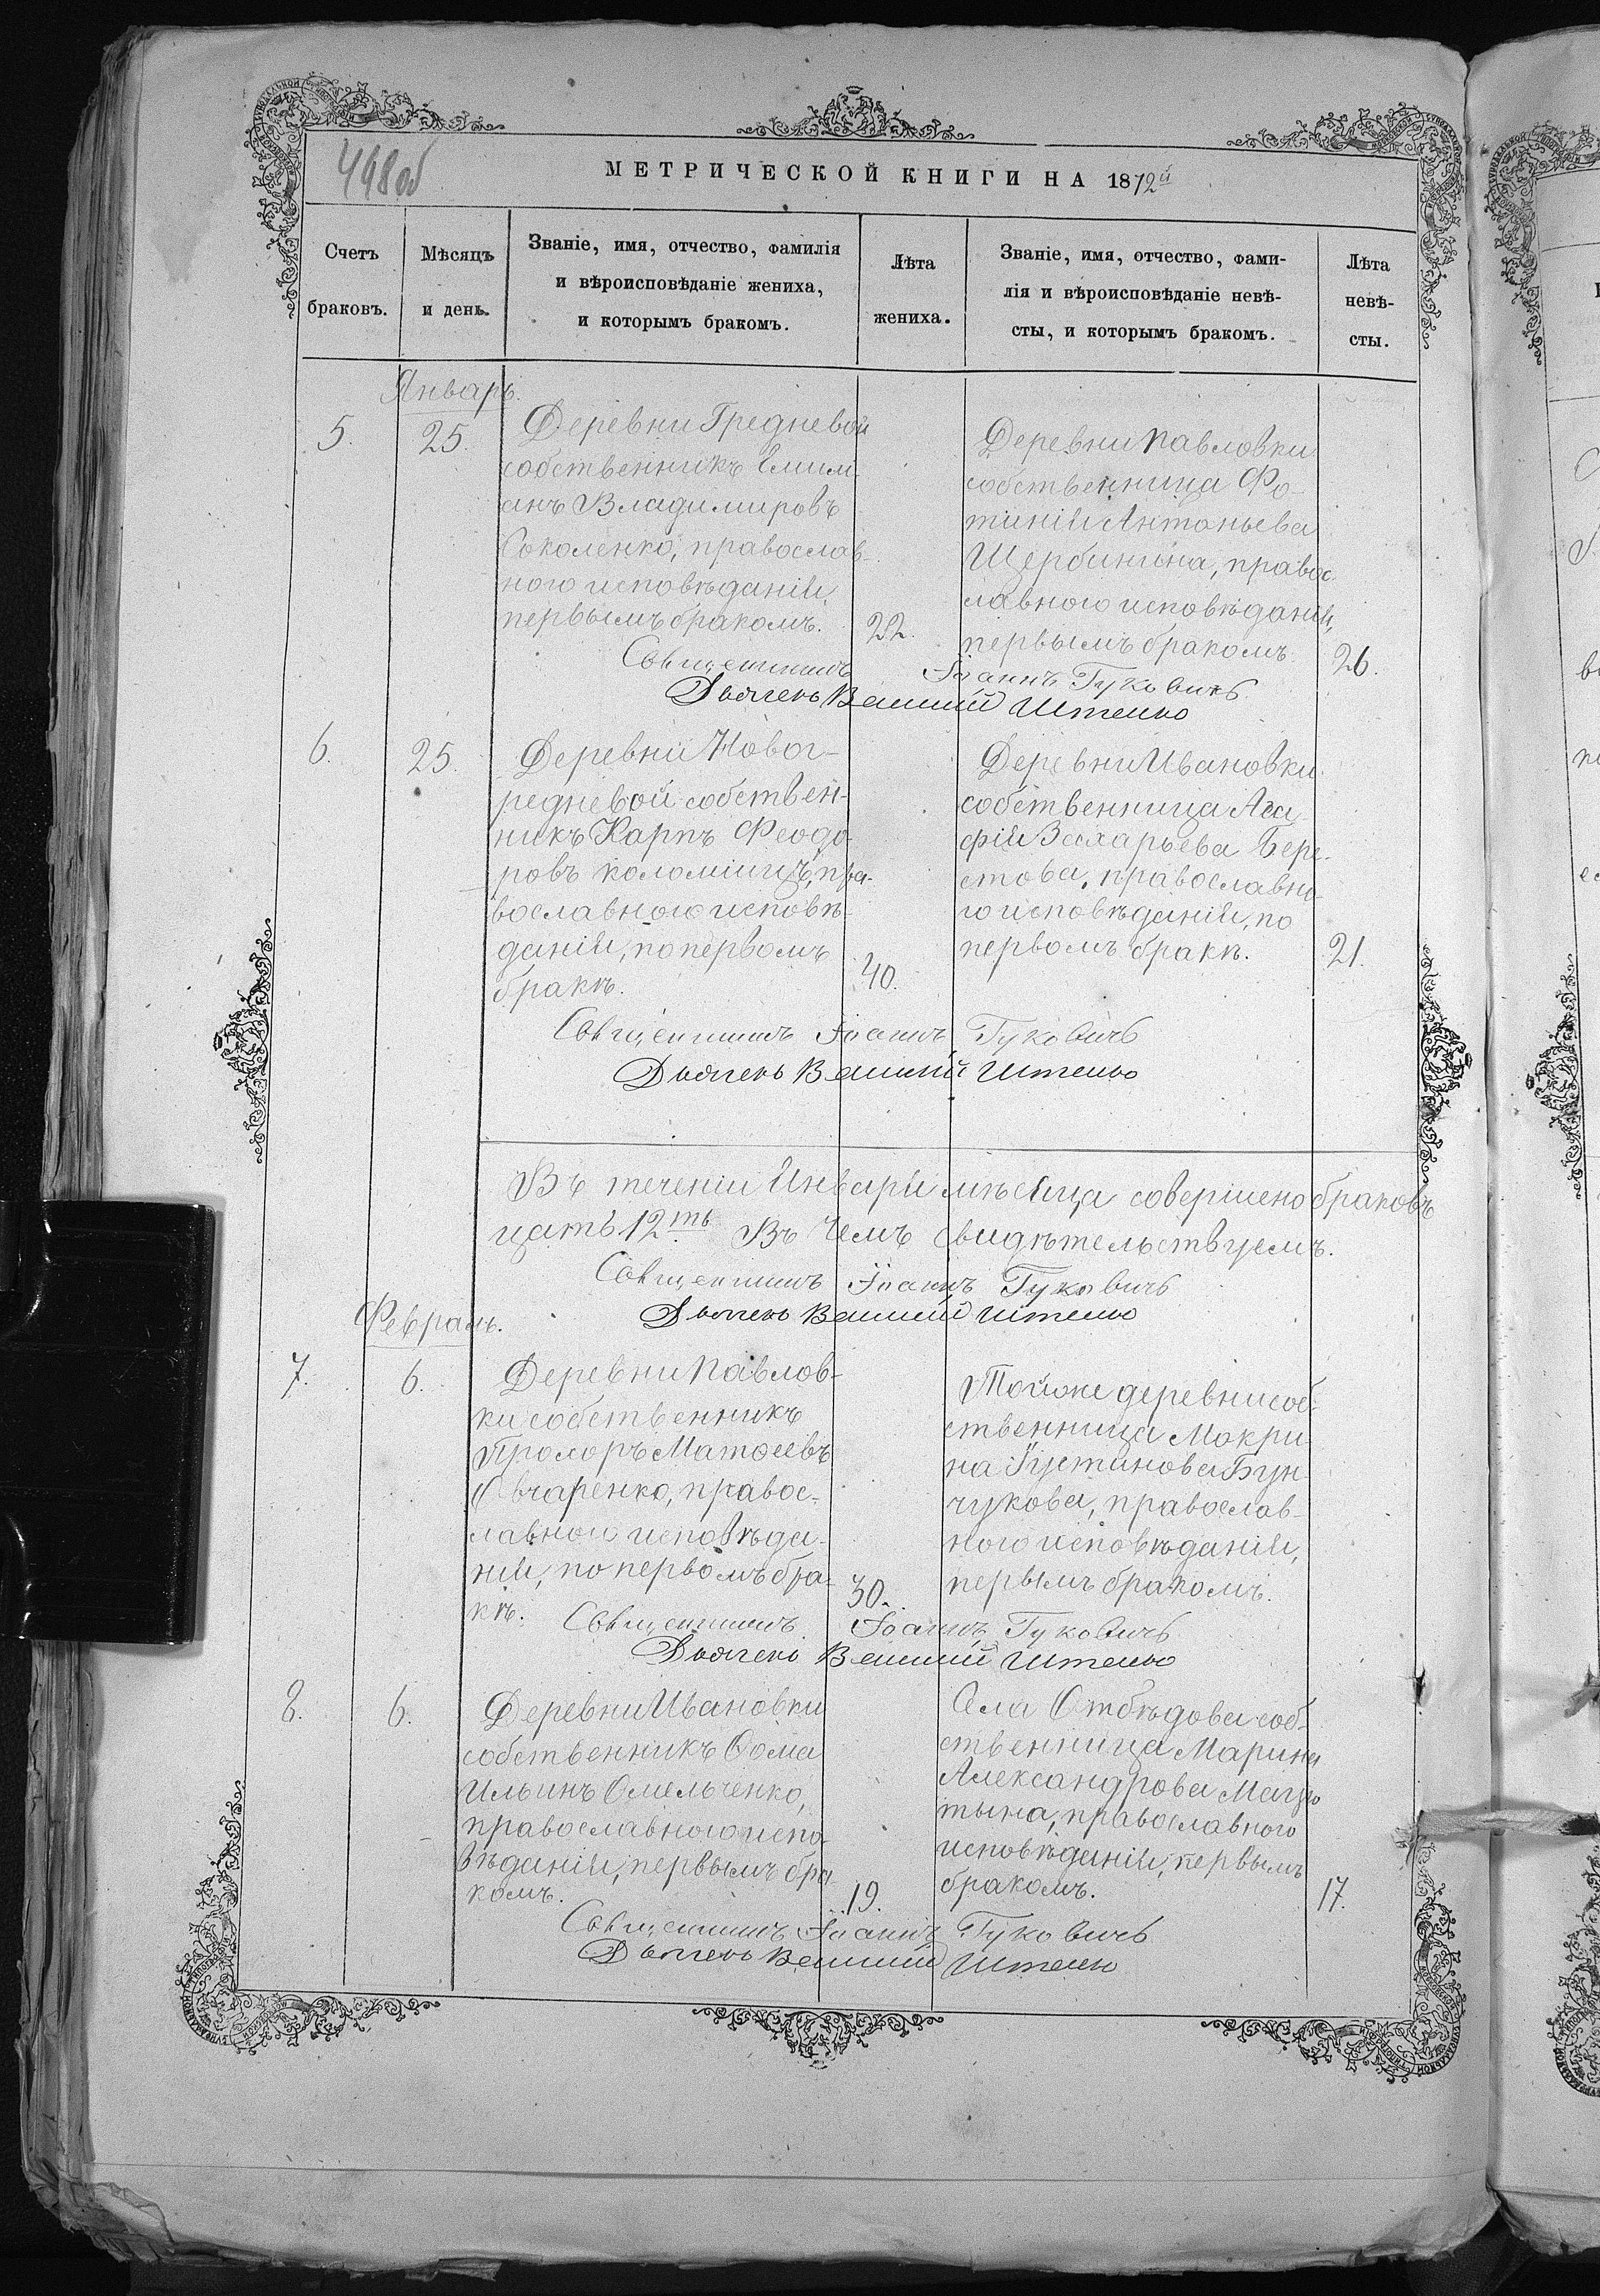 498об
МЕТРИЧЕСКОЙ КНИГИ НА 1872й
Счетъ
браковъ.
Мѣсяцъ
и день.
Званіе, имя, отчество, фамилія
и вѣроисповѣданіе жениха,
и которымъ бракомъ.
Лѣта
жениха.
Званіе, имя, отчество, фами-
лія и вѣроисповѣданіе невѣ-
сты, и которымъ бракомъ.
Лѣта
невѣ-
сты.
Январь.
5.
25.
Деревни Гредневой
собственникъ Емили
анъ Владимировъ
Соколенко, православ-
ного исповѣданія
первымъ бракомъ.
22.
Деревни Павловки
собственница Фо-
тинія Антоньева
Щербинина, правос
лавного исповѣданія,
первымъ бракомъ
26.
Священникъ Іоаннъ Гуковичъ
Дьячекъ Василій Штенко
6.
25.
Деревни Новог-
редневой собствен-
никъ Карпъ Феодо-
ровъ Коломіицъ, пра-
вославного исповѣ-
данія, по первомъ
бракѣ.
40.
Деревни Ивановки
собственница Ага-
фія Захарьева Бере-
стова, православно-
го исповѣданія, по
первомъ бракѣ.
21.
Священникъ Іоаннъ Гуковичъ
Дьячекъ Василій Штенко
Въ теченіи Января мѣсяца совершено браковъ
12ть. Въ чемъ свидѣтельствуемъ.
Священникъ Іоаннъ Гуковичъ
Дьячекъ Василій Штенко
Февраль.
7.
6.
Деревни Павлов-
ки собственникъ
Прохоръ Матѳеевъ
Овчаренко, правос-
лавного исповѣда-
нія, по первомъ бра-
кѣ.
30.
Тойже деревни соб-
ственница Макри-
на Іустинова Бун-
чукова, православ-
ного исповѣданія,
первымъ бракомъ.
Священникъ Іоаннъ Гуковичъ
Дьячекъ Василій Штенко
8.
6.
Деревни Ивановки
собственникъ Ѳома
Ильинъ Омельченко,
православного испо-
вѣданія, первымъ бра
комъ.
19.
Села Отбѣдова соб-
ственница Марина
Александрова
православного
исповѣданія, первымъ
бракомъ.
17.
Священникъ Іоаннъ Гуковичъ
Дьячекъ Василій Штенко